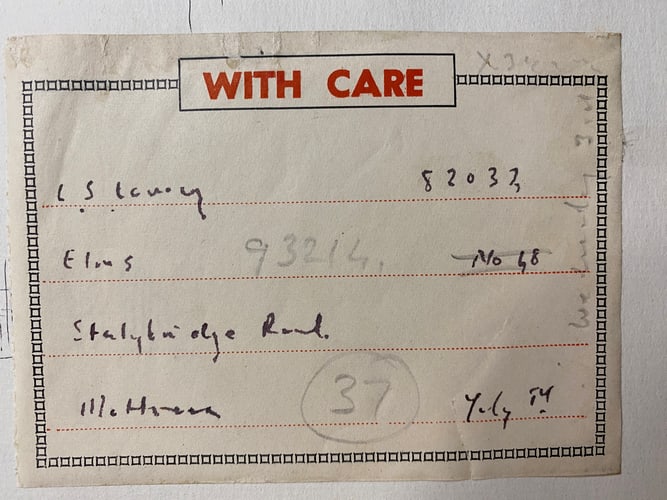 WITH CARE
L S Lowry 82032
Elms 93214. No 48
Stalybridge Road.
Mottram 37 July